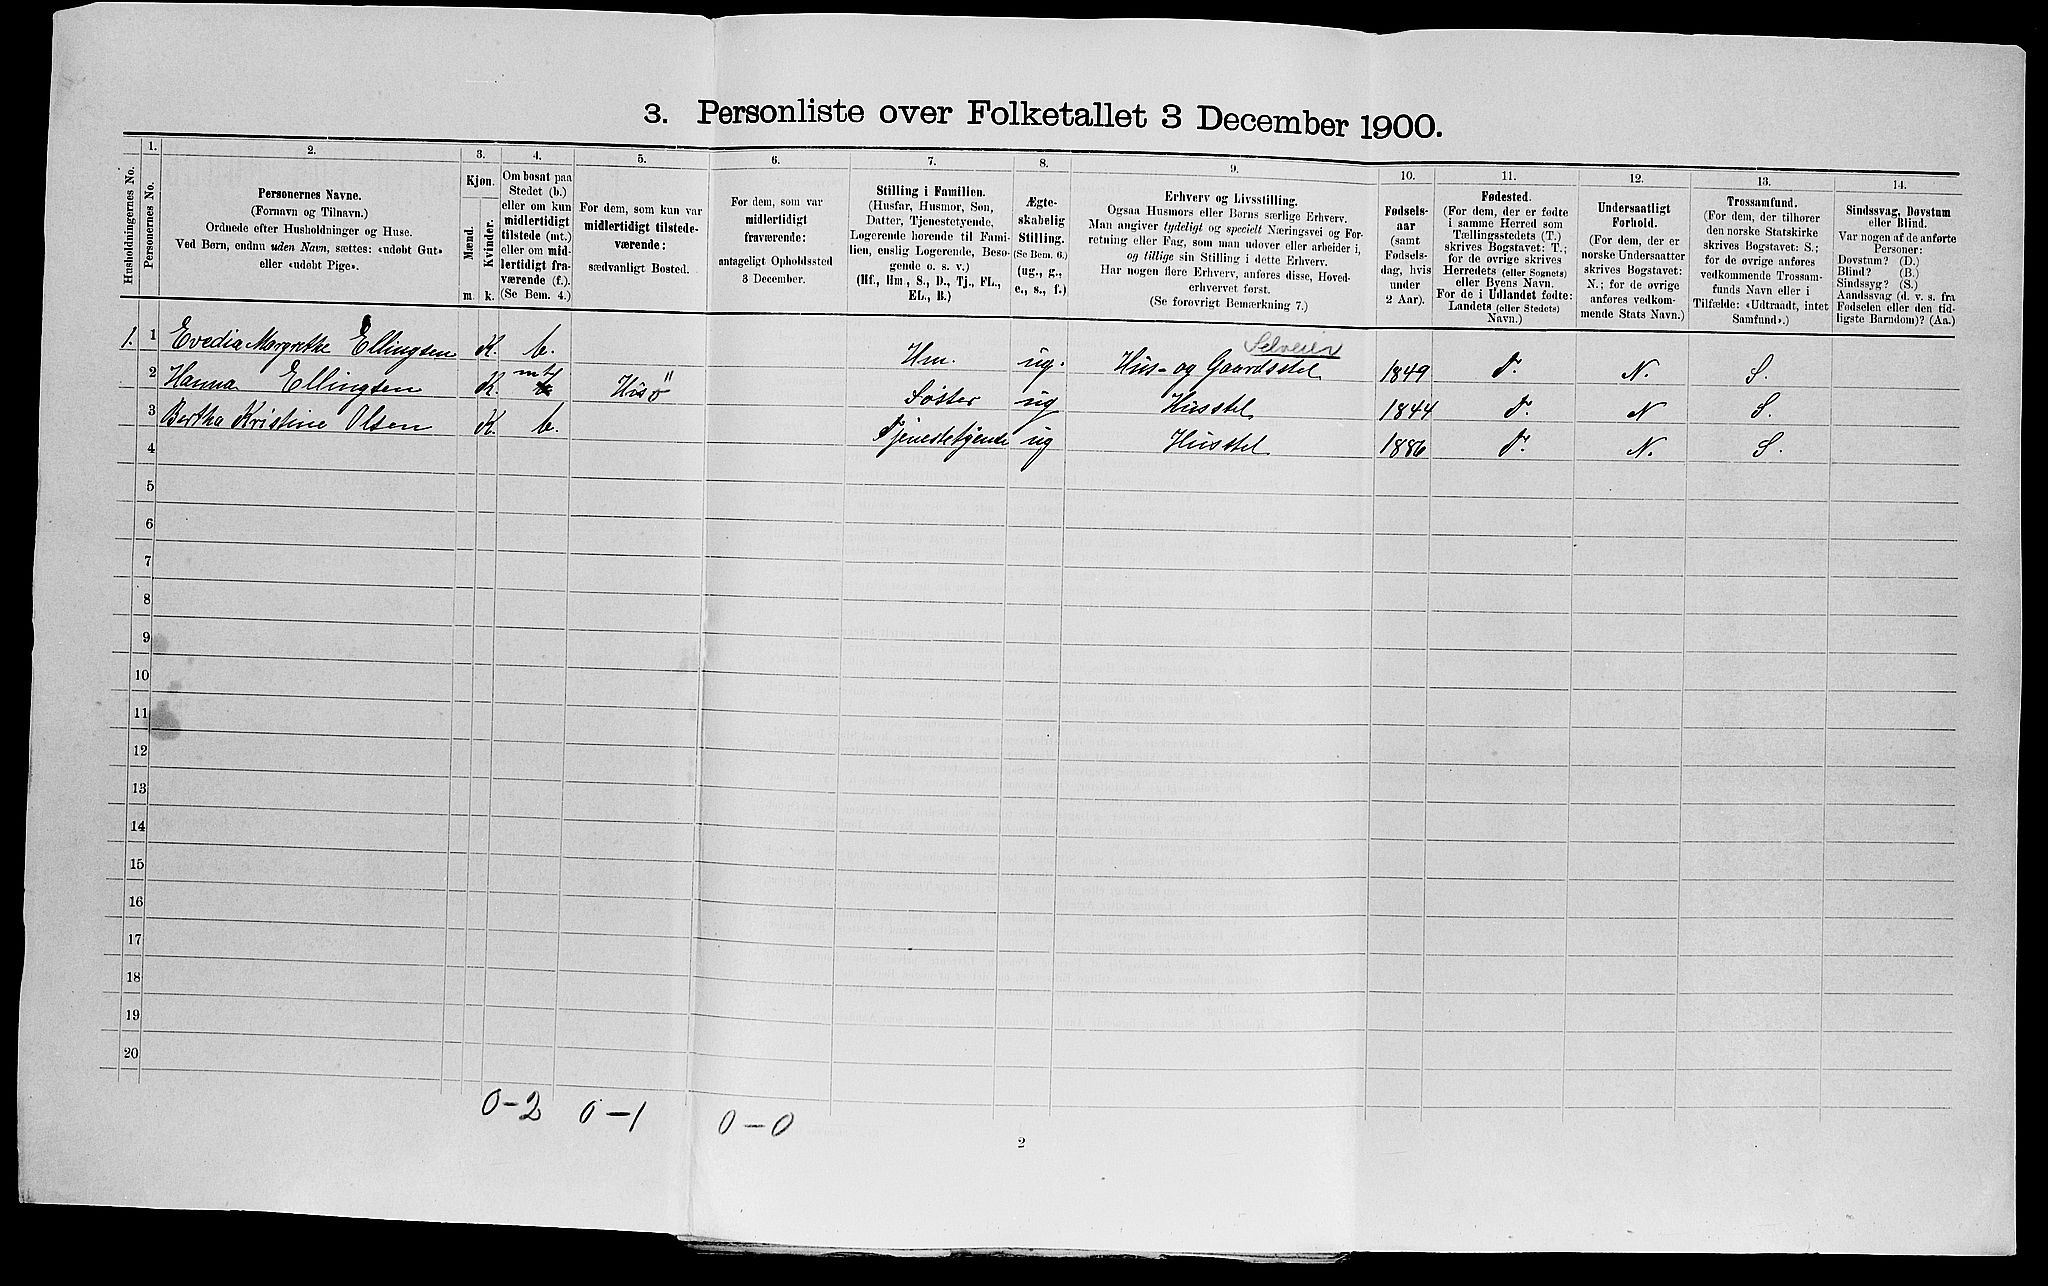 3. Personliste over Folketallet 3 December 1900.
Husholdningernes No.
1.
Personernes No.
2.
Personernes Navne.
(Fornavn og Tilnavn.)
Ordnede efter Husholdninger og Huse.
Ved Børn, endnu uden Navn, sættes: «udøbt Gut»
eller «udøbt Pige».
3.
Kjøn.
Mænd.
Kvinder.
m. k.
4.
Om bosat paa
Stedet (b.)
eller om kun
midlertidigt
tilstede (mt.)
eller om mid-
lertidigt fra-
værende (f.).
(Se Bem. 4.)
5.
For dem, som kun var
midlertidigt tilstede-
værende:
sædvanligt Bosted.
6.
For dem, som var
midlertidigt
fraværende:
antageligt Opholdssted
3 December.
7.
Stilling i Familien.
(Husfar, Husmor, Søn,
Datter, Tjenestetyende,
Logerende hørende til Fami-
lien, enslig Logerende, Besø-
gende o. s. v.)
(Hf., Hm., S., D., Tj., FL.,
EL., B.)
8.
Ægte-
skabelig
Stilling.
(Se Bem. 6.)
(ug., g.,
e., s., f.)
9.
Erhverv og Livsstilling.
Ogsaa Husmors eller Børns særlige Erhverv.
Man angiver tydeligt og specielt Næringsvei og For-
retning eller Fag, som man udover eller arbeider i,
og tillige sin Stilling i dette Erhverv.
Har nogen flere Erhverv, anføres disse, Hoved-
erhvervet først.
(Se forøvrigt Bemærkning 7.)
10.
Fødsels-
aar
(samt
Fødsels-
dag, hvis
under
2 Aar).
11.
Fødested.
(For dem, der er fødte
i samme Herred som
Tællingsstedets (T.)
skrives Bogstavet: T.;
for de øvrige skrives
Herredets (eller Sognets)
eller Byens Navn.
For de i Udlandet fødte:
Landets (eller Stedets)
Navn.)
12.
Undersaatligt
Forhold.
(For dem, der er
norske Undersaatter
skrives Bogstavet:
N.; for de øvrige
anføres vedkom-
mende Stats Navn.)
13.
Trossamfund.
(For dem, der tilhører
den norske Statskirke
skrives Bogstavet: S.;
for de øvrige anføres
vedkommende Trossam-
funds Navn eller i
Tilfælde: «Udtraadt, intet
Samfund».)
14.
Sindssvag, Døvstum
eller Blind.
Var nogen af de anførte
Personer:
Døvstum? (D.)
Blind? (B.)
Sindssyg? (S.)
Aandssvag (d. v. s. fra
Fødselen eller den tid-
ligste Barndom)? (Aa.)
Selveier
1. 1 Evedia Margrethe Ellingsen K. b. Hm. ug. Hus- og Gaardsstel 1849 T. N. S.
mt
2 Hanna Ellingsen K. Hisö Søster ug Husstel 1844 T. N S.
3 Bertha Kristine Olsen K. b. Tjenestetjende ug Husstel 1886 T. N. S.
4
5
6
7
8
9
10
11
12
13
14
15
16
17
18
19
20
0-2 0-1 0-0
2